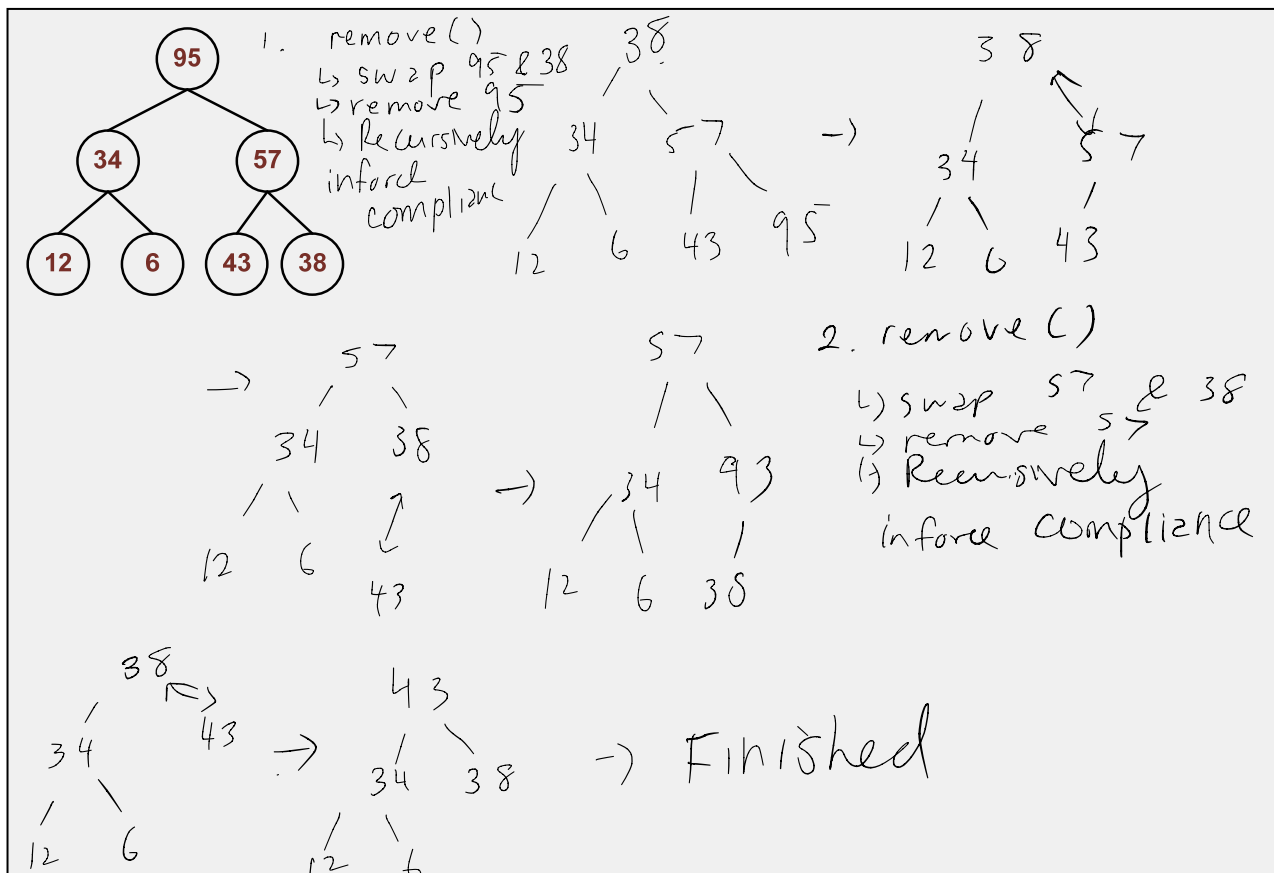 95
34 57
12 6 43 38
1. remove()
↳ swap 95 & 38
↳ remove 95
↳ Recursively
inforce
compliance
38
34 57
12 6 43 95
→
38
34 57
12 6 43
→
57
34 38
12 6
43
→
57
34 93
12 6 38
2. remove()
↳ swap 57 & 38
↳ remove 57
↳ Recursively
inforce compliance
38
43
34
12 6
→
43
34 38
12 6
→ Finished